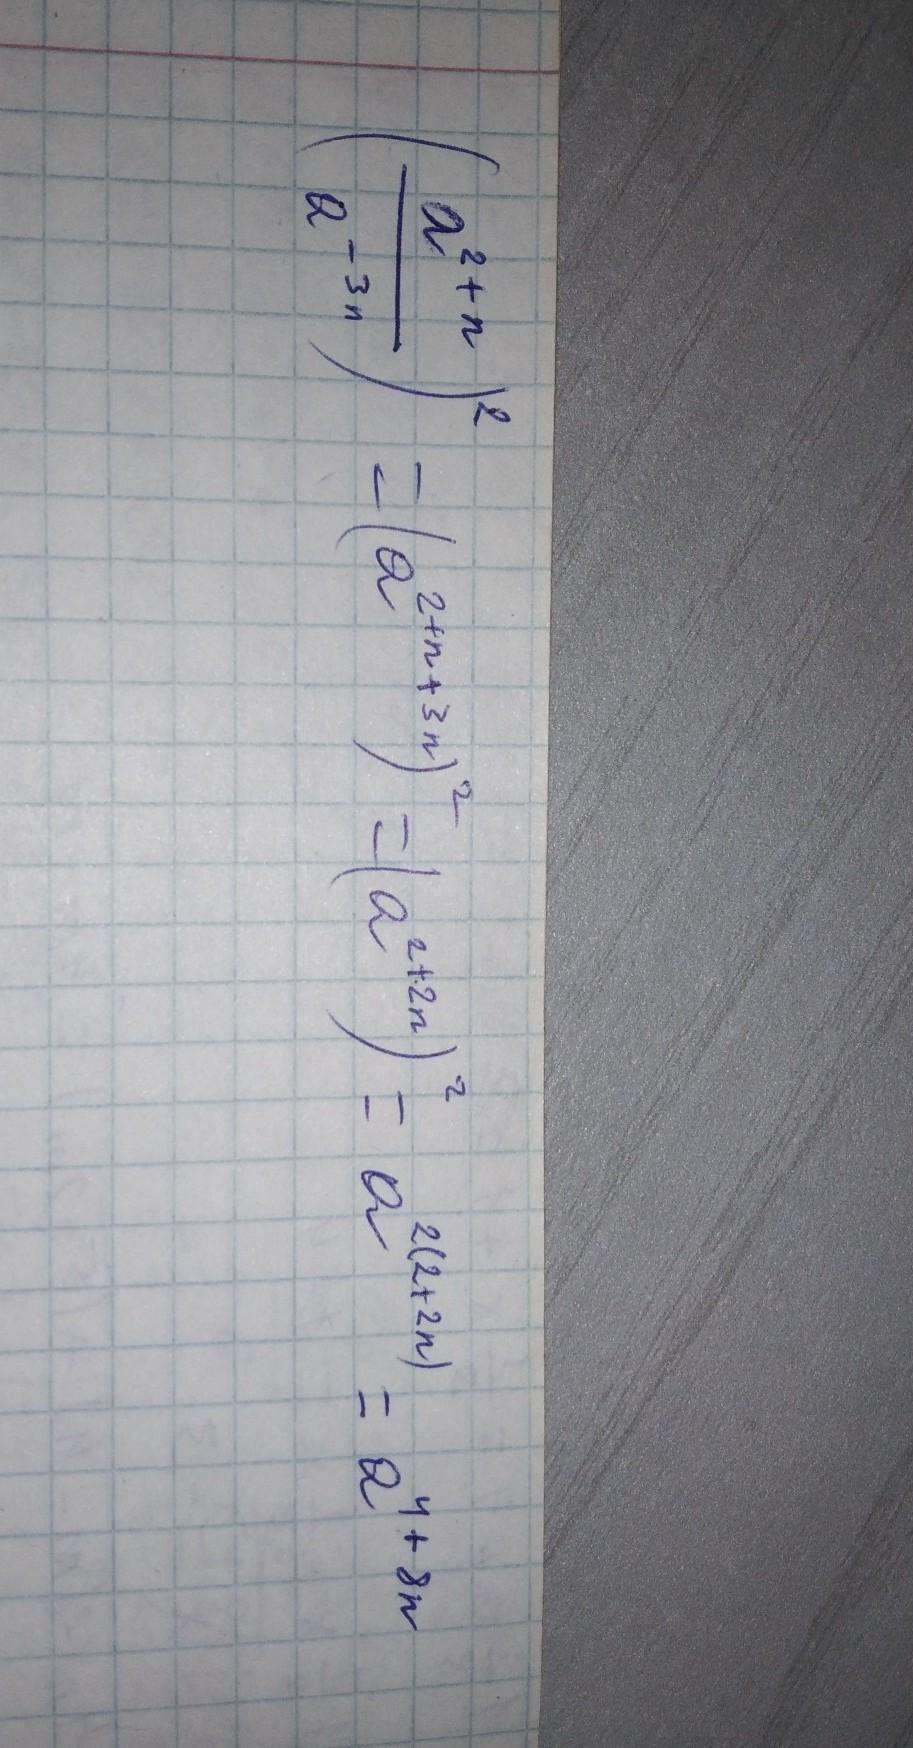 (a^{2+n} / a^{-3n})^2 = (a^{2+n+3n})^2 = (a^{2+2n})^2 = a^{2(2+2n)} = a^{4+8n}